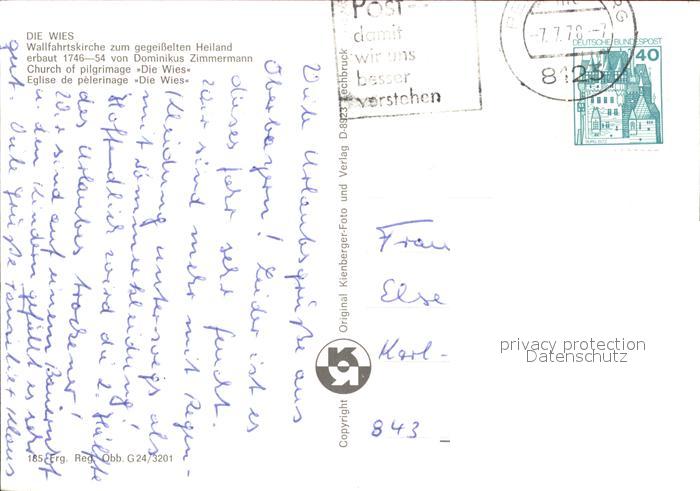 DIE WIES
Wallfahrtskirche zum gegeißelten Heiland
erbaut 1746—54 von Dominikus Zimmermann
Church of pilgrimage »Die Wies«
Eglise de pèlerinage »Die Wies«
Viele Urlaubsgrüße aus
Oberbayern! Leider ist es
dieses Jahr sehr feucht.
Wir sind mehr mit Regen-
kleidung unterwegs als
mit Sommerkleidung!
Hoffentlich wird die 2. Hälfte
des Urlaubes trockener!
Wir sind auf einem Bauernhof
u. den Kindern gefällt es sehr
gut. Viele Grüße Familie Klaus
185 Frg. Reg. Obb. G 24/3201
Copyright Original Kienberger-Foto und Verlag D-8923 Lechbruck
Post-
damit
wir uns
besser
verstehen
-7.7.78-7
8123
DEUTSCHE BUNDESPOST
40
BURG ELTZ
Frau
Else
Karl-
843
privacy protection
Datenschutz